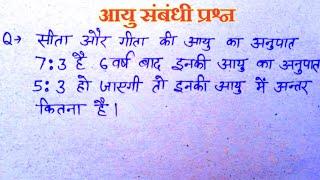 आयु संबंधी प्रश्न
Q→ सीता और गीता की आयु का अनुपात
7:3 है 6 वर्ष बाद इनकी आयु का अनुपात
5:3 हो जाएगी तो इनकी आयु में अन्तर
कितना है।